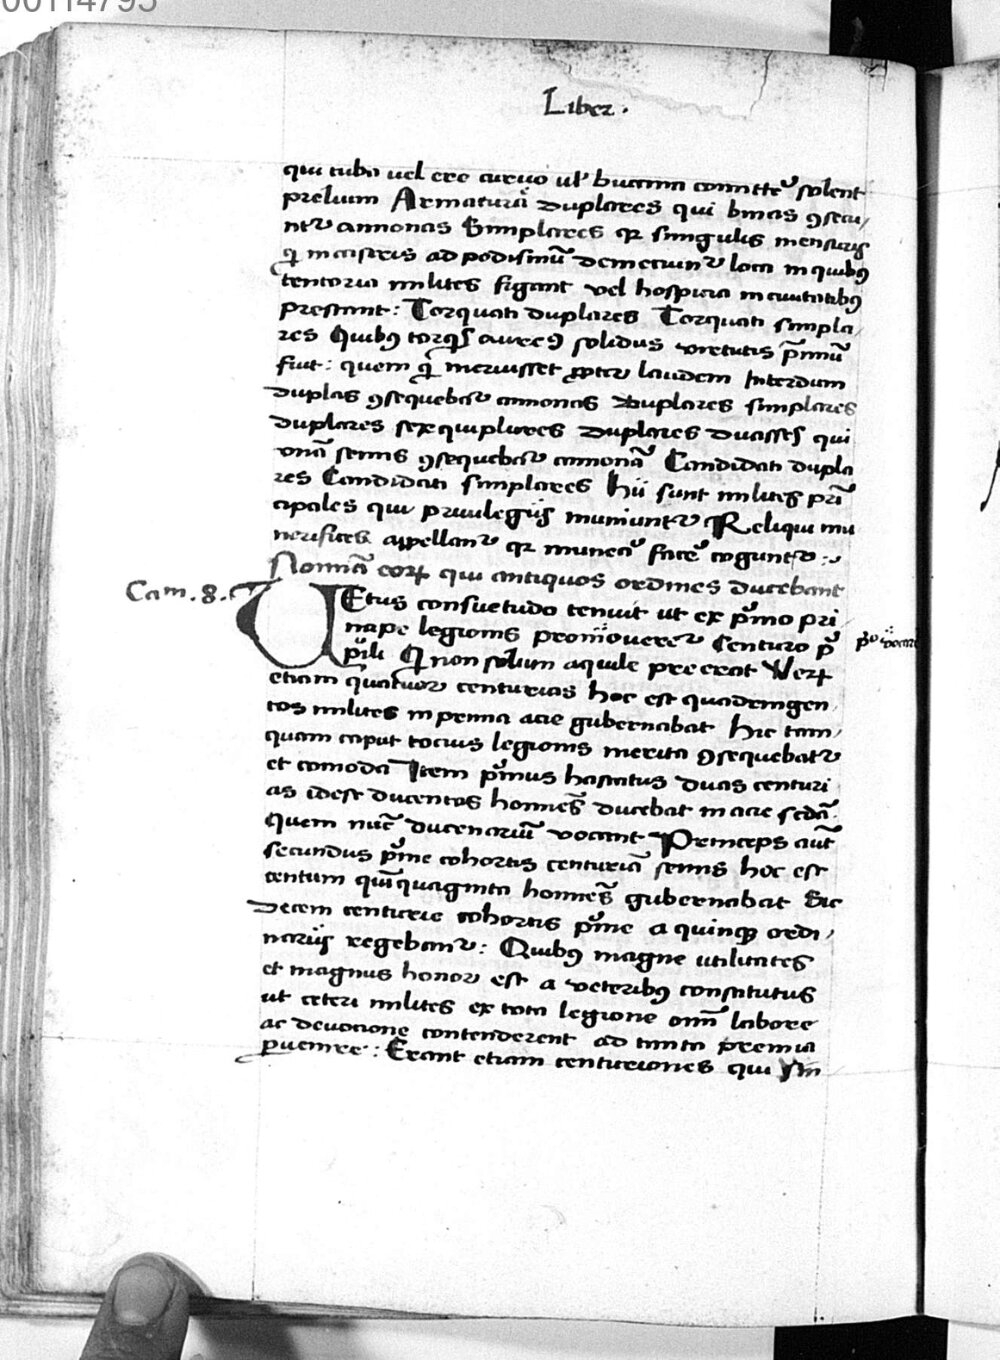 00114795
Liber.
qui tuba vel ere curuo ul' bucina comitte᷑ solent
prelium Armatura duplares qui binas ꝯsecu/
nt᷑ annonas Simplares qr singulis mensuris
qi in castris ad podismū demeciun᷑ loca in quibꝯ
tentoria milites figant vel hospicia in ciuitatibꝯ
prestant: Torquati duplares Torquati simpla/
res Quibꝯ torqs aureꝯ solidus virtutis p̄miū
fuit: quem qi meruisset propter laudem Interdum
duplas ꝯsequebat᷑ annonas Duplares simplares
duplares sexquiplares duplares duasses qui
vnā semis ꝯsequebat᷑ annonā Candidati dupla
res Candidati simplares hii sunt milites prī
cipales qui priuilegiis muniunt᷑ Reliqui mu
nerifices appellan᷑ qr munera facere cogunt᷑:
Nomīa eorꝝ qui antiquos ordines ducebant
Cam. 8.
VEtus consuetudo tenuit ut ex pͥmo pri
ncipe legionis promouere᷑ Centurio pͥ
pͥli Qi non solum aquile preerat Verꝝ
etiam quatuor centurias hoc est quadringen
tos milites in prima acie gubernabat hic tam/
quam caput tocius legionis merita ꝯsequebat᷑
et comoda Item pͥmus hastatus duas centuri
as idest ducentos homīes ducebat in acie secdā.
quem nūc ducenariū vocant Princeps aūt
secundus pͥme cohortis centuriā semis hoc est
centum quīquaginta homīes gubernabat Sic
decem centurie cohortis pͥme a quinqꝫ ordi/
nariis regeban᷑: Quibꝯ magne utilitates
et magnus honor est a veteribꝯ constitutus
ut ceteri milites ex tota legione omī labore
ac deuotione contenderent ad tanta premia
ꝑuenire: Erant etiam centuriones qui sin